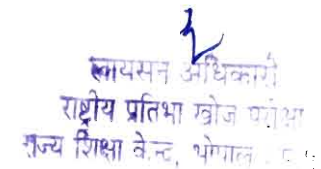 लायसन अधिकारी
राष्ट्रीय प्रतिभा खोज परीक्षा
राज्य शिक्षा केन्द्र, भोपाल